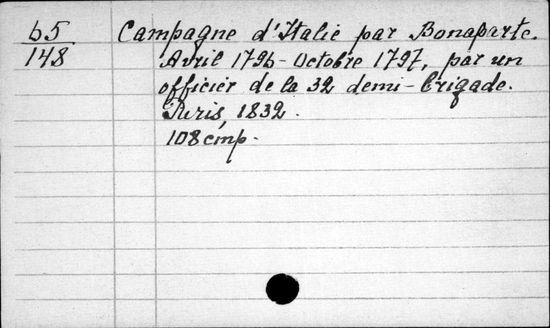 65 Campagne d'Italie par Bonaparte.
148 Avril 1796 - Octobre 1797, par un
officier de la 32 demi-brigade.
Paris, 1832.
108 cmp.